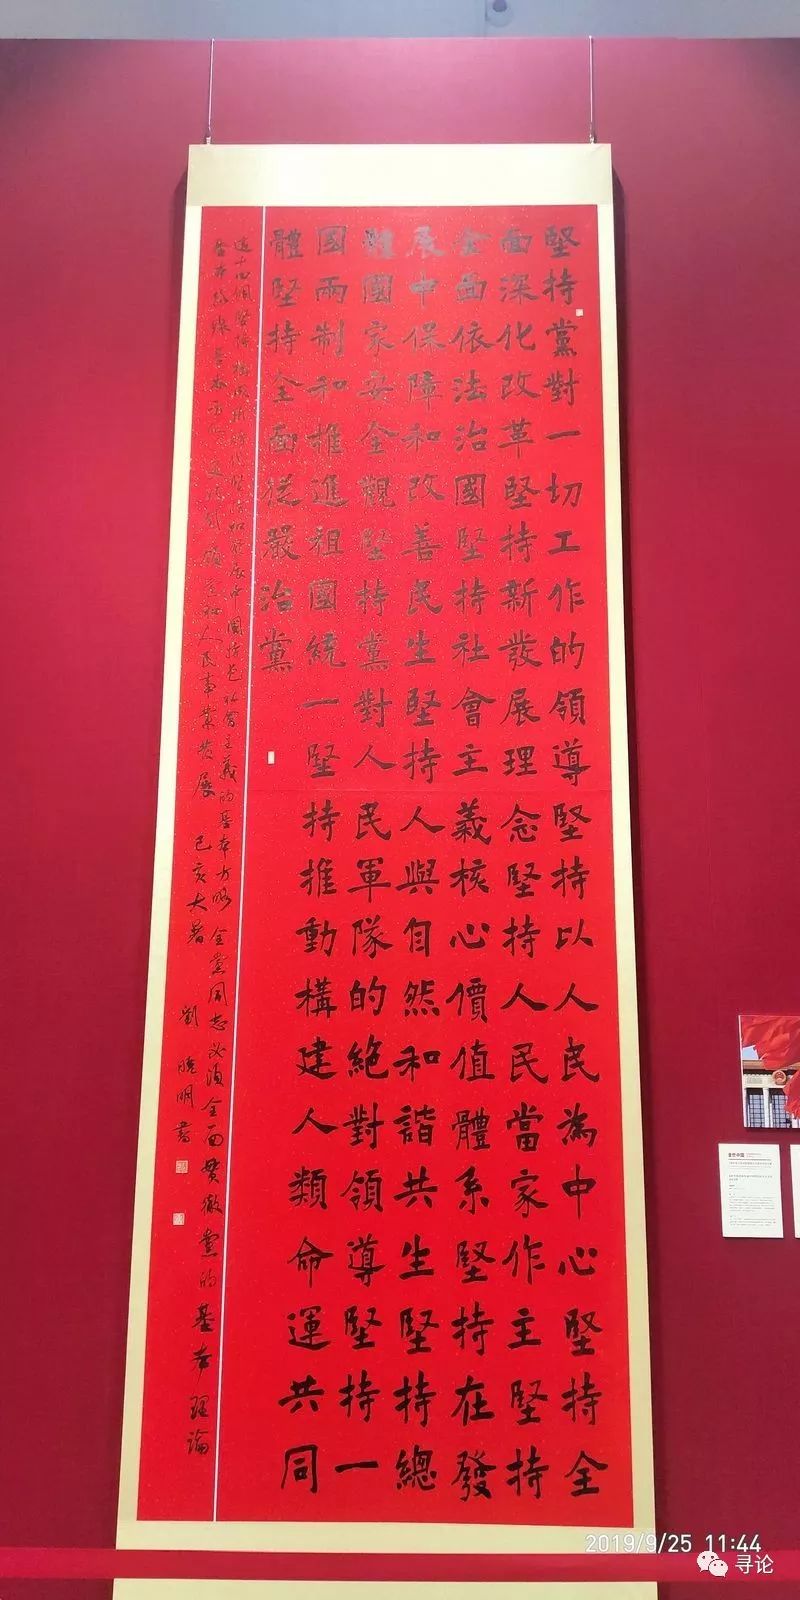 堅持黨對一切工作的領導堅持以人民為中心堅持全
面深化改革堅持新發展理念堅持人民當家作主堅持
全面依法治國堅持社會主義核心價值體系堅持在發
展中保障和改善民生堅持人與自然和諧共生堅持總
體國家安全觀堅持黨對人民軍隊的絕對領導堅持一
國兩制和推進祖國統一堅持推動構建人類命運共同
體堅持全面從嚴治黨
這十四個堅持構成新時代堅持和發展中國特色社會主義的基本方略全黨同志必須全面貫徹黨的基本理論
基本路線基本方略更好引領黨和人民事業發展 己亥大暑 劉曉明書
2019/9/25 11:44
寻论